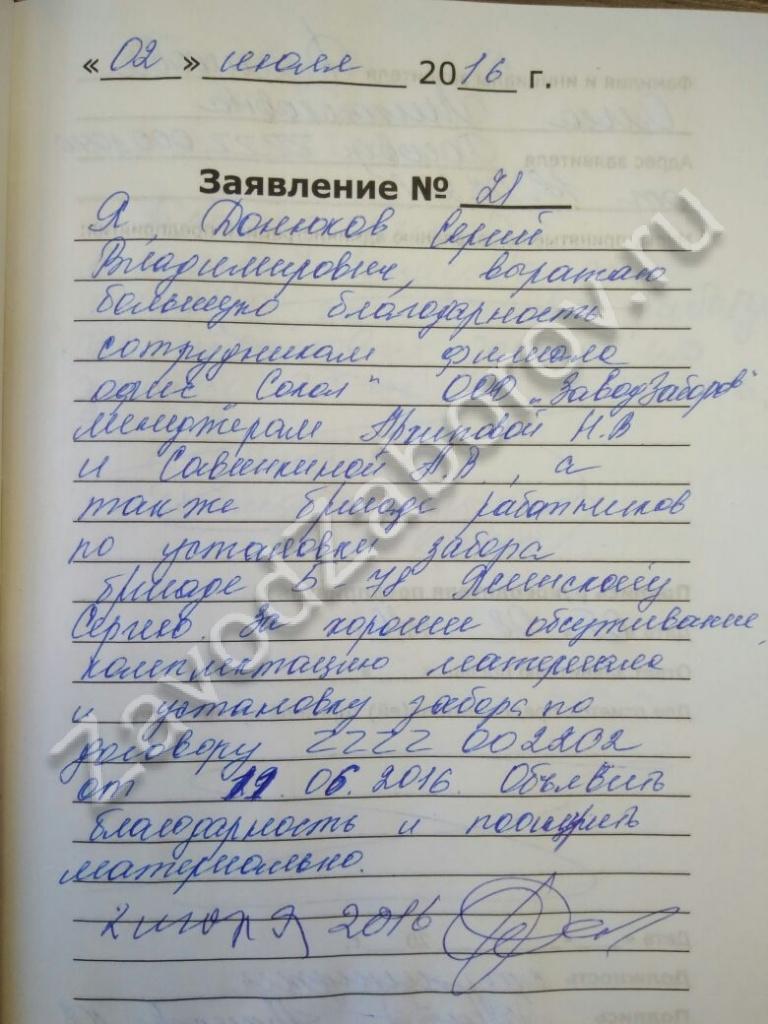 «02» июля 2016 г.
Заявление № 21
Я, Донюков Сергий
Владимирович, выражаю
большую благодарность
сотрудникам филиала
офис "Сокол" ООО „ЗаводЗаборов"
менеджерам Архиповой Н.В
и Савинкиной А.В., а
также бригаде работников
по установки забора
бригаде Б 78 Яминскому
Сергею. За хорошие обсуживание,
комплектацию материала
и установку забора по
договору ZZZZ 002202
от 19.06.2016. Объявить
благодарность и поощрить
материально.
2 июля 2016
ZavodZaborov.ru